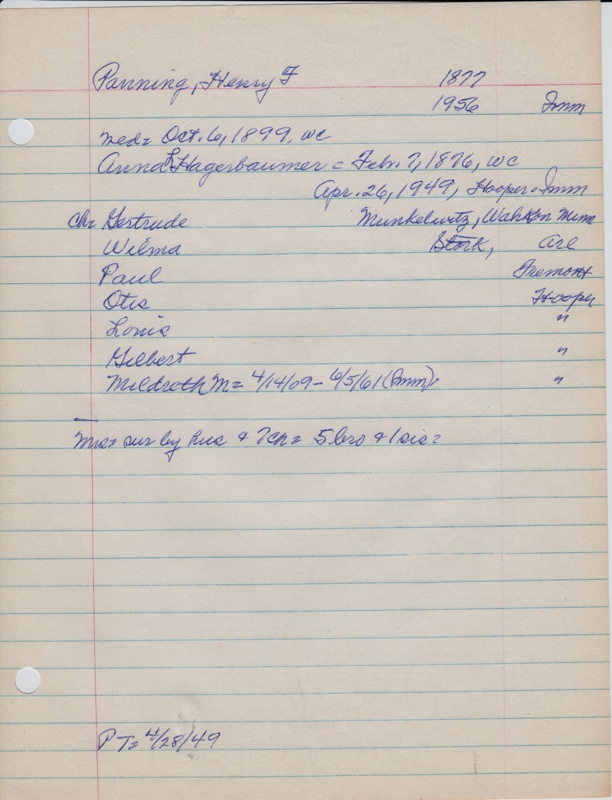 Panning, Henry F 1877
1956 Imm
med= Oct. 6, 1899, WC
Anna L Hagerbaumer = Feb. 7, 1876, WC
Apr. 26, 1949, Hooper = Imm
Ch= Gertrude Munkelwitz, Wahkon Minn
Wilma Stork, Arl
Paul Fremont
Otis Hooper
Louis "
Gilbert "
Mildroth M = 4/14/09 - 6/5/61 (Imm) "
Mrs= sur by hus & 7ch= 5 bro & 1 sis=
PT= 4/28/49